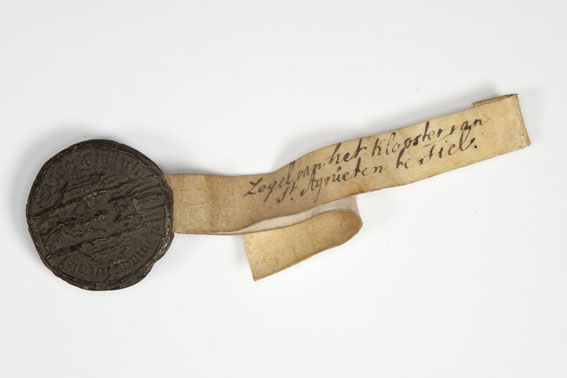 Zegel van het Klooster van
St. Agnieten te Tiel.